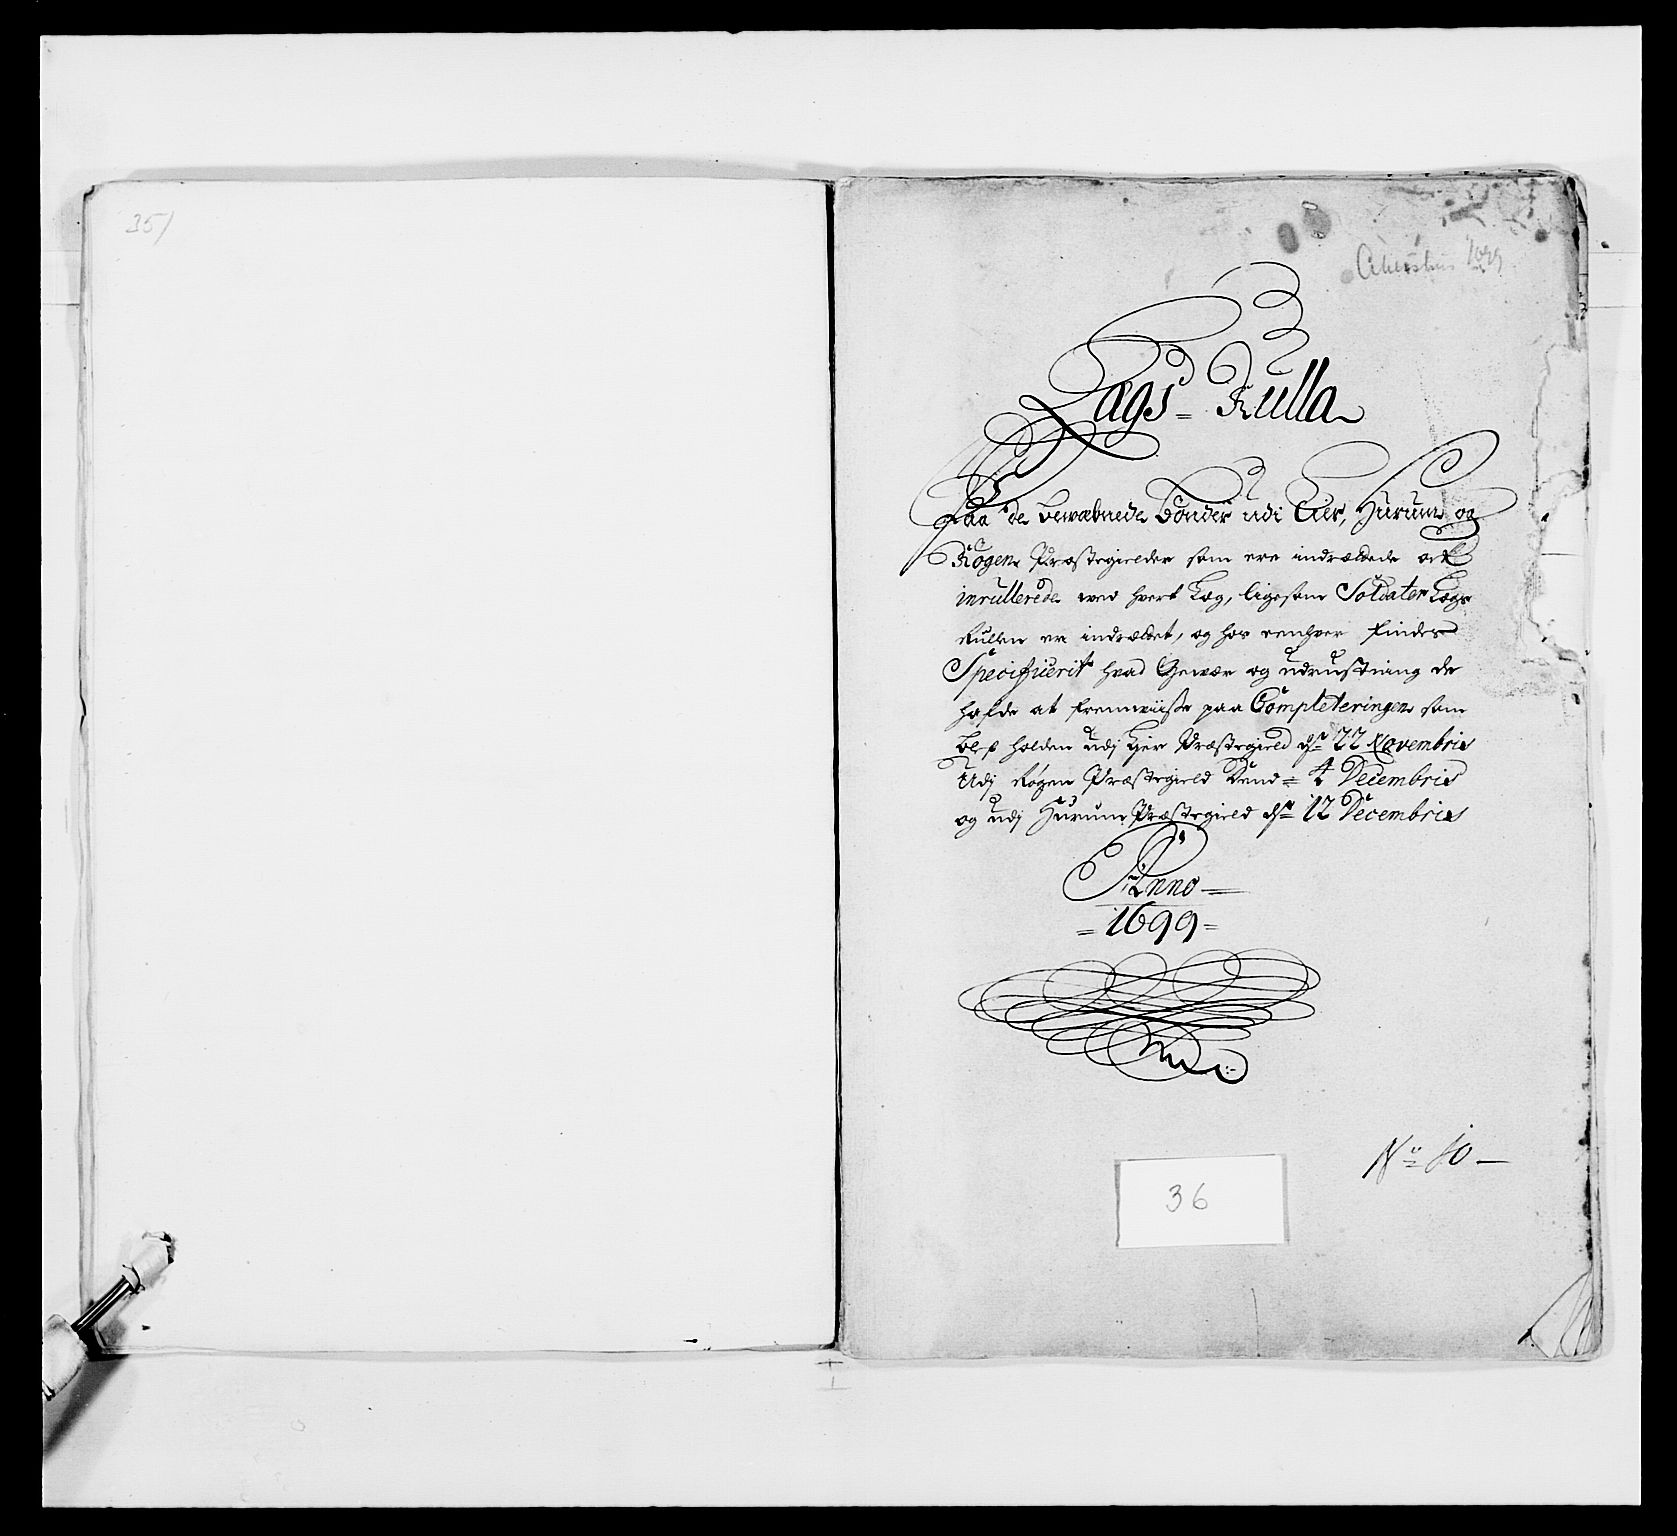 351
Akershus 1699
Lægs = Rulla
Paa de bewæbnede Bønder udi Eier, Hurum og
Røgen Præstegielder som ere inddeelede och
inrullerede wed hvert Læg, ligesom Soldater Lægs
Rullen er inddeelet, og hos eenhver findes
Specificerit hvad Gewær og udrustning de
hafde at fremwiiße paa Completeringen som
blef holden udj Eier Præstegield d. 22 Novembris
Udj Røgen Præstegield dend = 4 Decembris
og udj Hurum Præstegield d. 12 Decembris
Anno =
= 1699 =
No 10 —
36